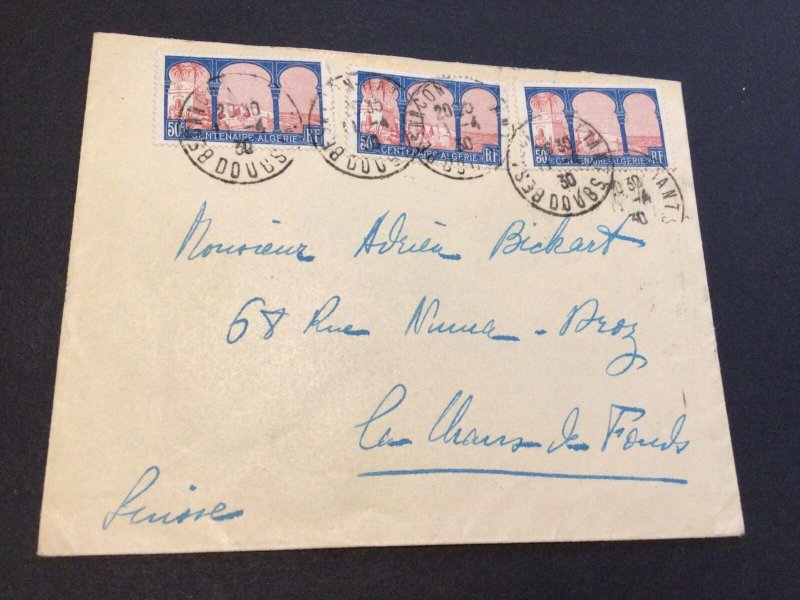 50c CENTENAIRE-ALGÉRIE RF
50c CENTENAIRE-ALGÉRIE RF
50c CENTENAIRE-ALGÉRIE RF
BESANÇON DOUBS
20 30
-4
30
Monsieur Adrien Bickart
68 Rue Numa-Droz
La Chaux de Fonds
Suisse